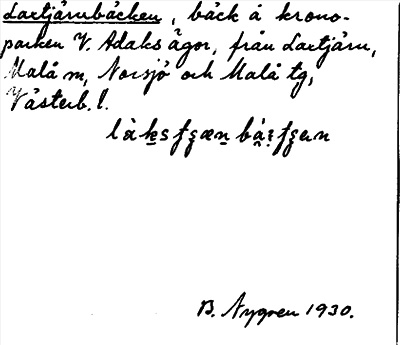 Laxtjärnbäcken, bäck å krono-
parken V. Adaks ägor, från Laxtjärn,
Malå sn, Norsjö och Malå tg,
Västerb. l.
B. Nygren 1930.